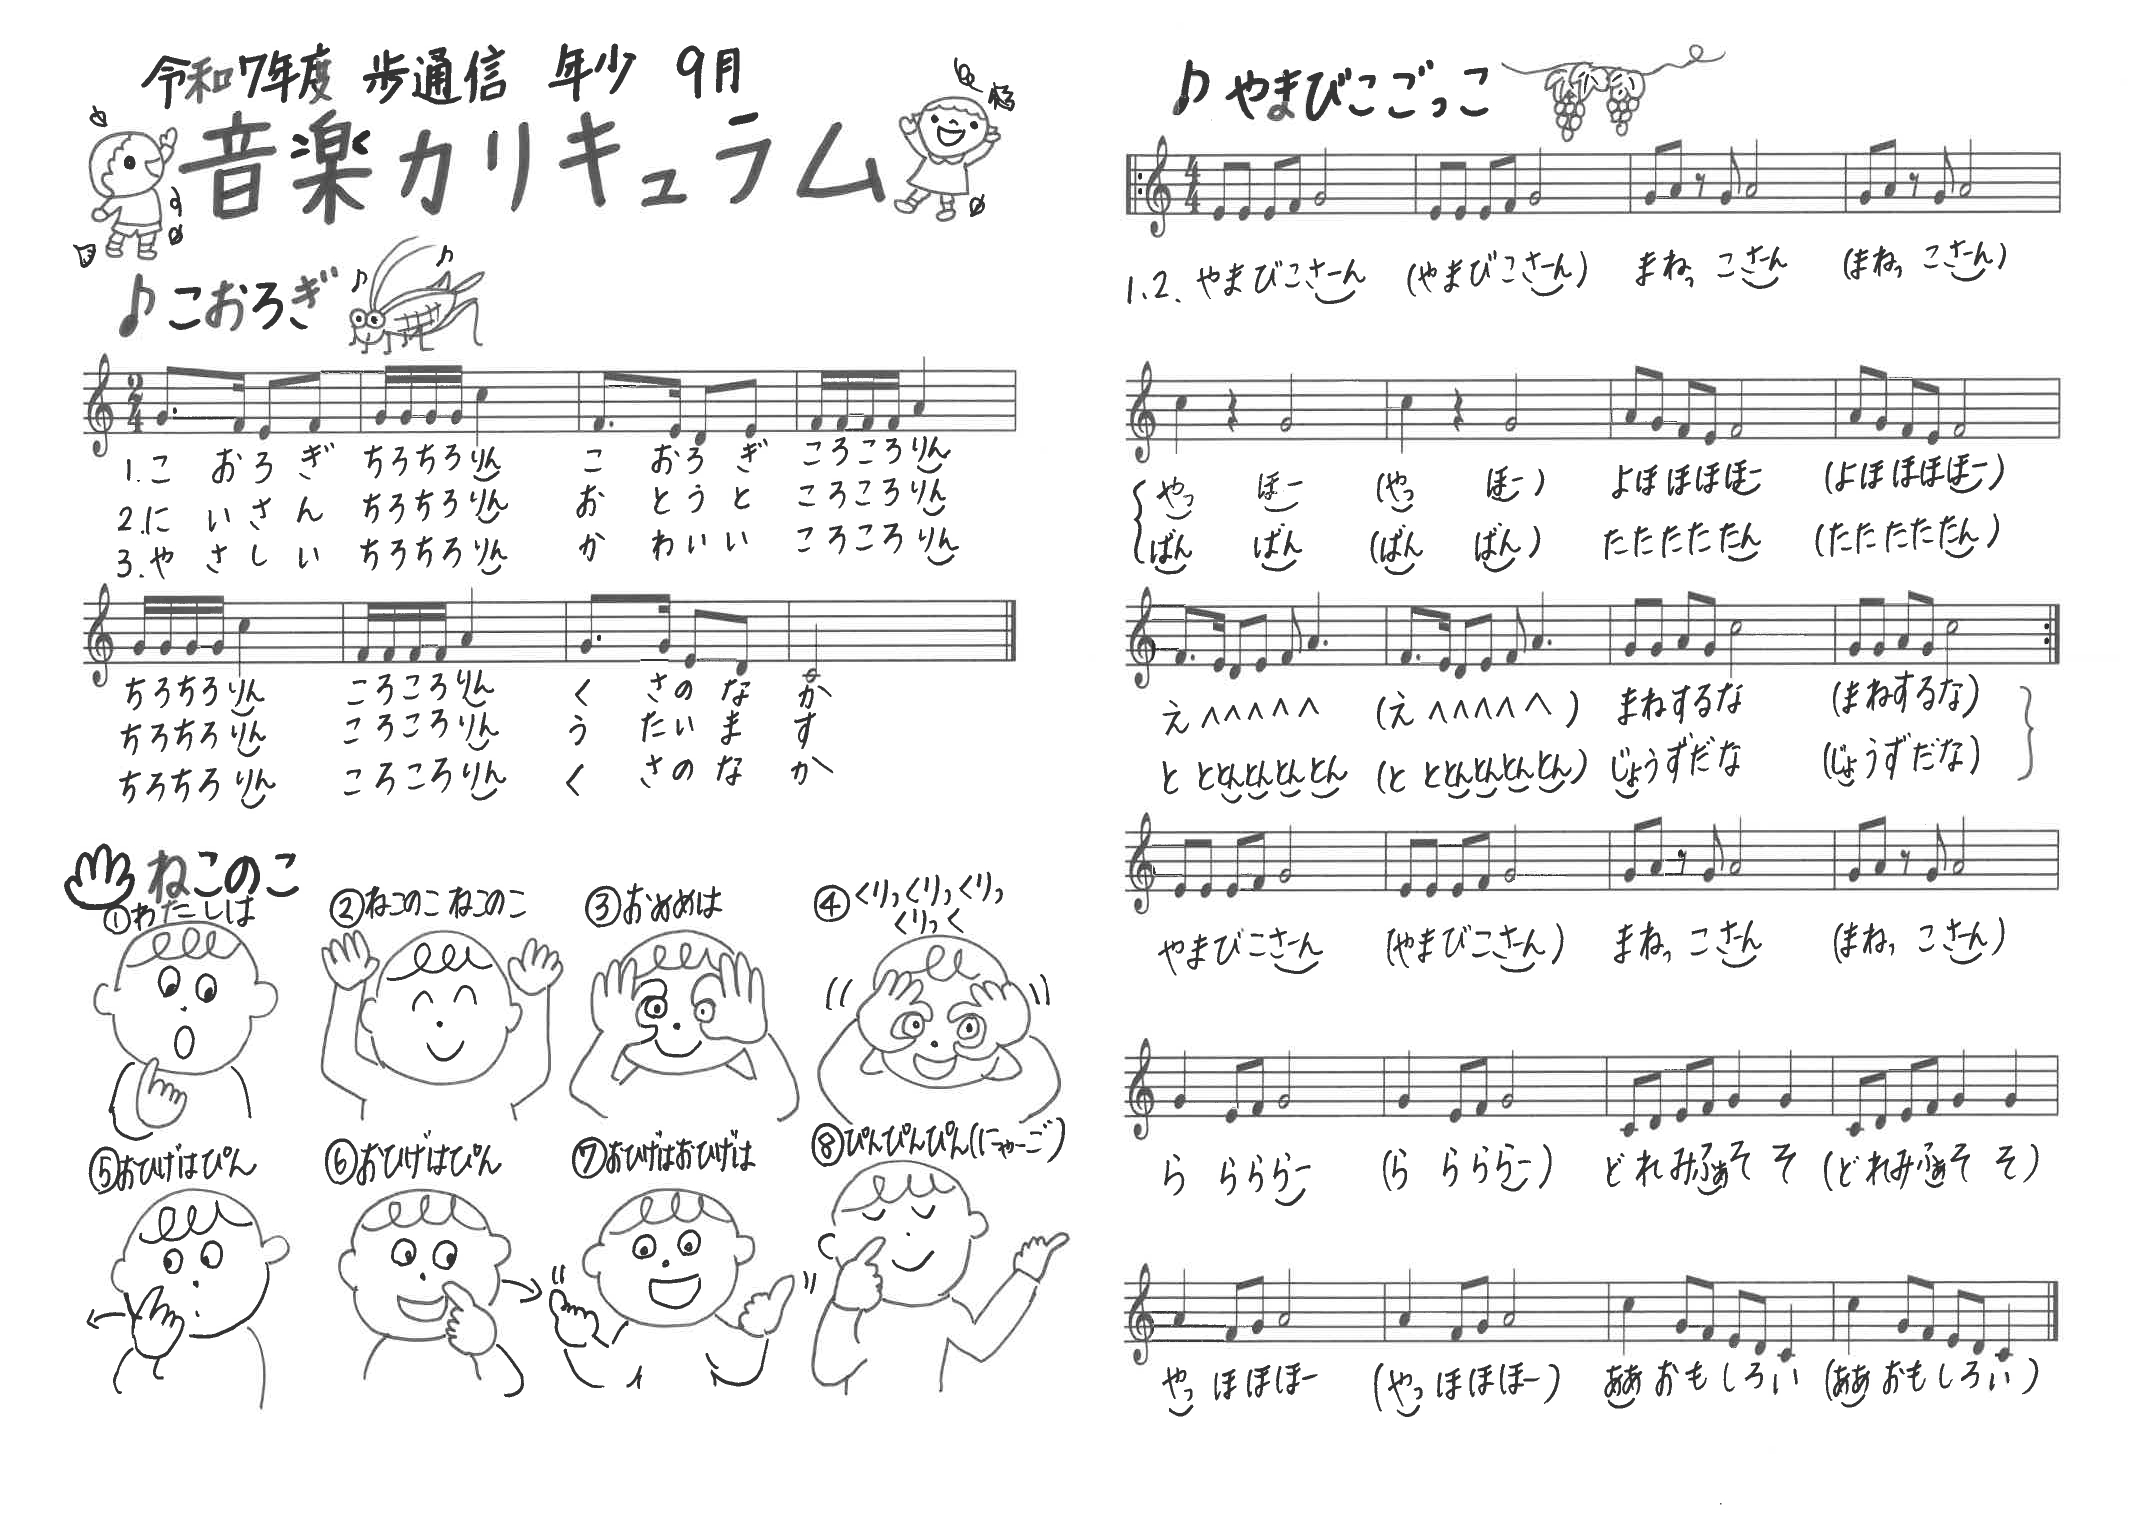 令和7年度 歩通信 年少 9月
音楽カリキュラム
♪こおろぎ
1.こ おろぎ ちろちろりん こ おろぎ ころころりん
2.に いさん ちろちろりん お とうと ころころりん
3.や さしい ちろちろりん か わいい ころころりん
ちろちろりん ころころりん く さのな か
ちろちろりん ころころりん う たいま す
ちろちろりん ころころりん く さのな か
ねこのこ
①わたしは
②ねこのこ ねこのこ
③おめめは
④くりっくりっくりっ
くりっく
⑤おひげはぴん
⑥おひげはぴん
⑦おひげはおひげは
⑧ぴんぴんぴん(にゃーご)
♪やまびこごっこ
1.2. やまびこさーん (やまびこさーん) まねっ こさーん (まねっ こさーん)
やっ ほー (やっ ほー) よほほほほー (よほほほほー)
ばん ばん (ばん ばん) たたたたたん (たたたたたん)
えへへへへへ (えへへへへへ) まねするな (まねするな)
と ととんとんとんとん (と ととんとんとんとん) じょうずだな (じょうずだな)
やまびこさーん (やまびこさーん) まねっ こさーん (まねっ こさーん)
ら らららー (ら らららー) どれみふぁそ そ (どれみふぁそ そ)
やっ ほほほー (やっ ほほほー) ああ おもしろい (ああ おもしろい)